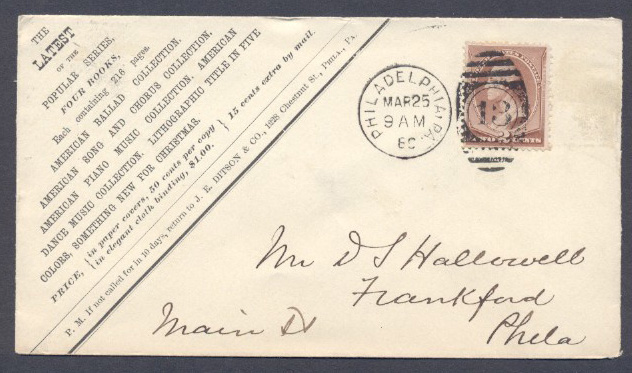 THE
LATEST
OF THE
POPULAR SERIES,
FOUR BOOKS,
Each containing 216 pages.
AMERICAN BALLAD COLLECTION.
AMERICAN SONG AND CHORUS COLLECTION. AMERICAN
AMERICAN PIANO MUSIC COLLECTION. AMERICAN
DANCE MUSIC COLLECTION. LITHOGRAPHIC TITLE IN FIVE
COLORS. SOMETHING NEW FOR CHRISTMAS.
PRICE, { in paper covers, 50 cents per copy } 15 cents extra by mail.
in elegant cloth binding, $1.00.
P. M. If not called for in 10 days, return to J. E. DITSON & CO., 1228 Chestnut St., PHILA., PA.
PHILADELPHIA, PA.
MAR 25
9 AM
13
Mr D S Hallowell
Frankford
Main St
Phela